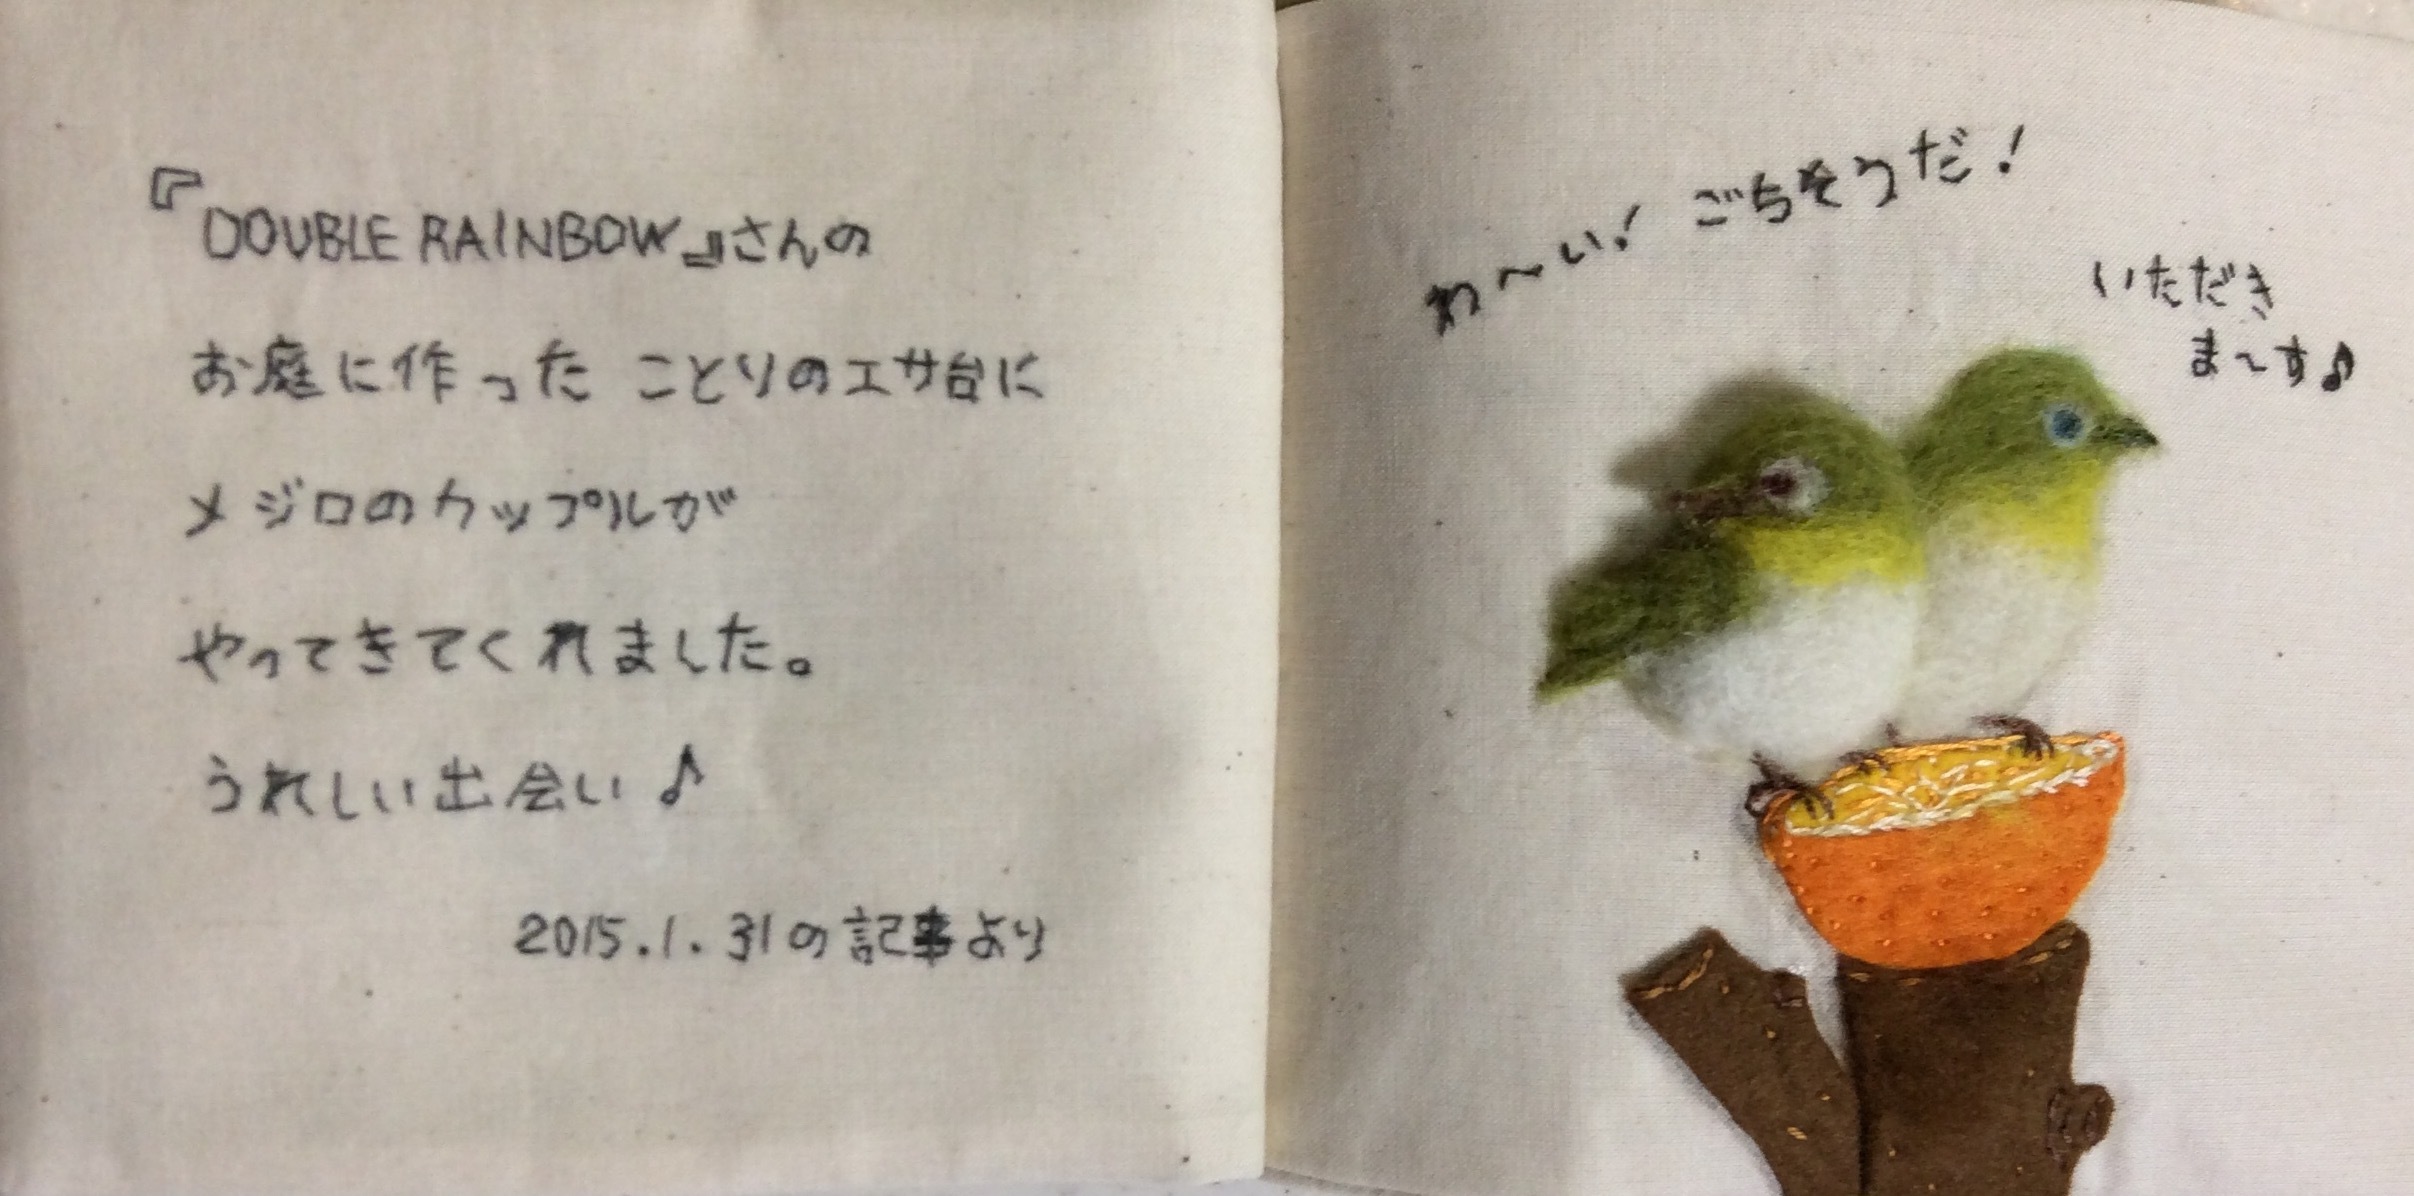 『DOUBLE RAINBOW』さんの
お庭に作った ことりのエサ台に
メジロのカップルが
やってきてくれました。
うれしい出会い♪
2015.1.31の記事より
わ〜い! ごちそうだ!
いただき
ま〜す♪